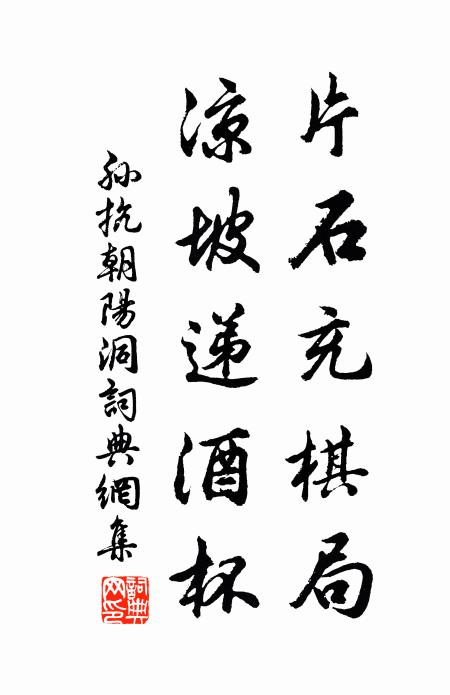 片石充棋局
凉坡递酒杯
孙抗朝陽洞詞典網集
詞典网印